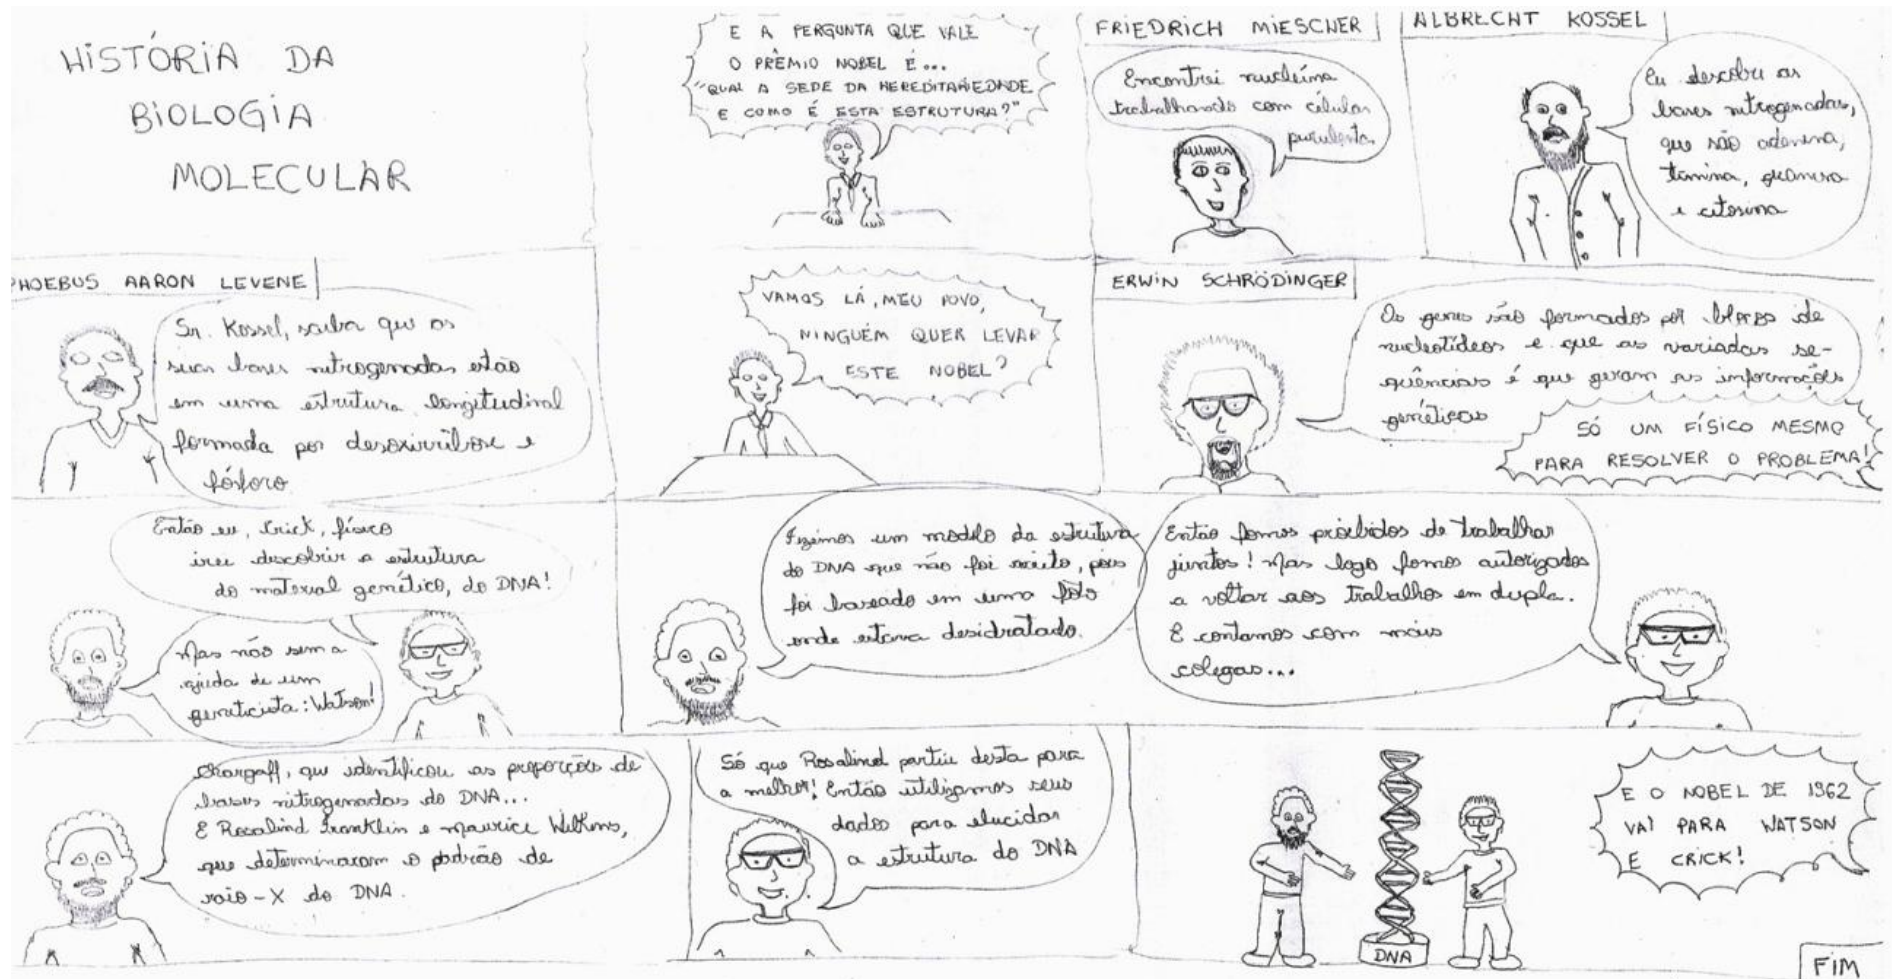 HISTÓRIA DA
BIOLOGIA
MOLECULAR
E A PERGUNTA QUE VALE
O PRÊMIO NOBEL É...
"QUAL A SEDE DA HEREDITARIEDADE
E COMO É ESTA ESTRUTURA?"
FRIEDRICH MIESCHER
Encontrei nucleína
trabalhando com células
purulentas
ALBRECHT KOSSEL
Eu descobri as
bases nitrogenadas,
que são adenina,
timina, guanina
e citosina
PHOEBUS AARON LEVENE
Sr. Kossel, saiba que as
suas bases nitrogenadas estão
em uma estrutura longitudinal
formada por desoxirribose e
fósforo
VAMOS LÁ, MEU POVO,
NINGUÉM QUER LEVAR
ESTE NOBEL?
ERWIN SCHRÖDINGER
Os genes são formados por blocos de
nucleotídeos e que as variadas se-
quências é que geram as informações
genéticas
SÓ UM FÍSICO MESMO
PARA RESOLVER O PROBLEMA!
Então eu, Crick, físico
irei descobrir a estrutura
do material genético, do DNA!
Mas não sem a
ajuda de um
geneticista: Watson!
Fizemos um modelo da estrutura
do DNA que não foi aceito, pois
foi baseado em uma foto
onde estava desidratado.
Então fomos proibidos de trabalhar
juntos! Mas logo fomos autorizados
a voltar aos trabalhos em dupla.
E contamos com mais
colegas...
Chargaff, que identificou as proporções de
bases nitrogenadas do DNA...
E Rosalind Franklin e Maurice Wilkins,
que determinaram o padrão de
raio-X do DNA.
Só que Rosalind partiu desta para
a melhor! Então utilizamos seus
dados para elucidar
a estrutura do DNA
DNA
E O NOBEL DE 1962
VAI PARA WATSON
E CRICK!
FIM